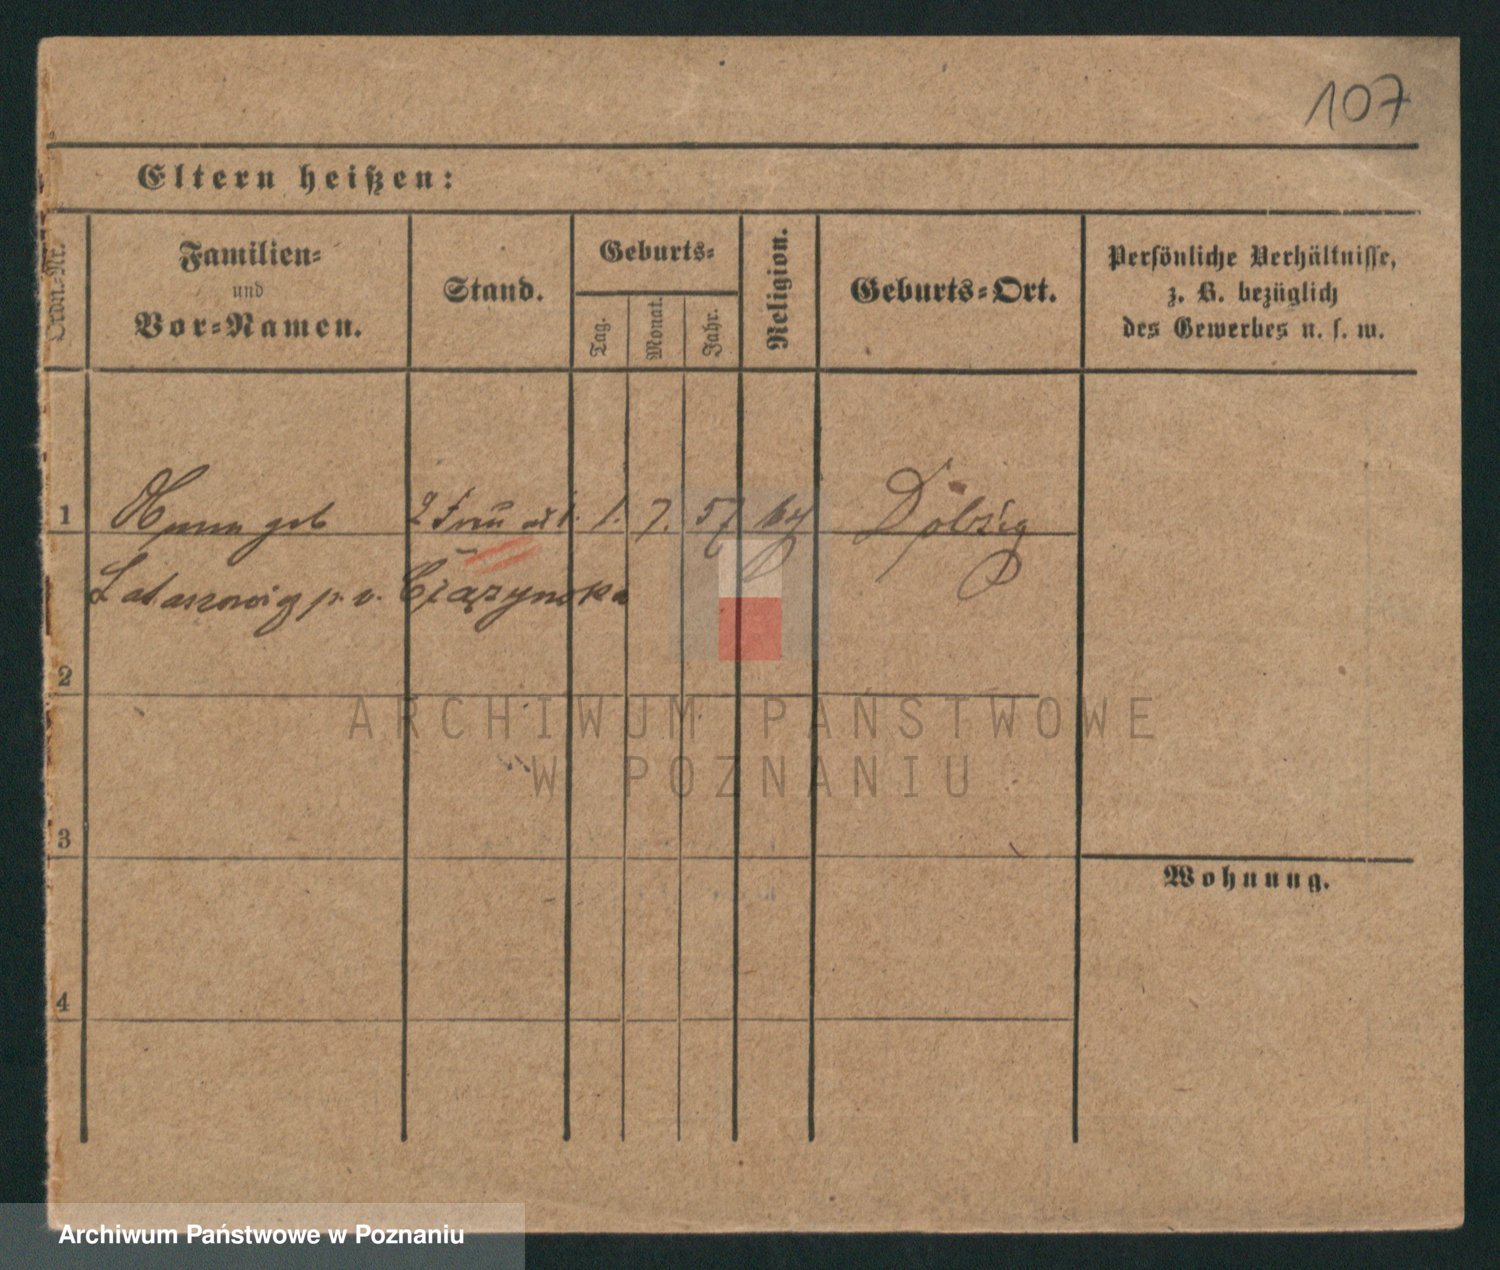 107
Eltern heißen:
Ordn.-Nr.
Familien-
und
Vor-Namen.
Stand.
Geburts-
Tag.
Monat.
Jahr.
Religion.
Geburts-Ort.
Persönliche Verhältnisse,
z. B. bezüglich
des Gewerbes u. s. w.
1 geb 2 Frau 1. 7. 57 Dölzig
p. v.
2
ARCHIWUM PAŃSTWOWE
W POZNANIU
3
Wohnung.
4
Archiwum Państwowe w Poznaniu